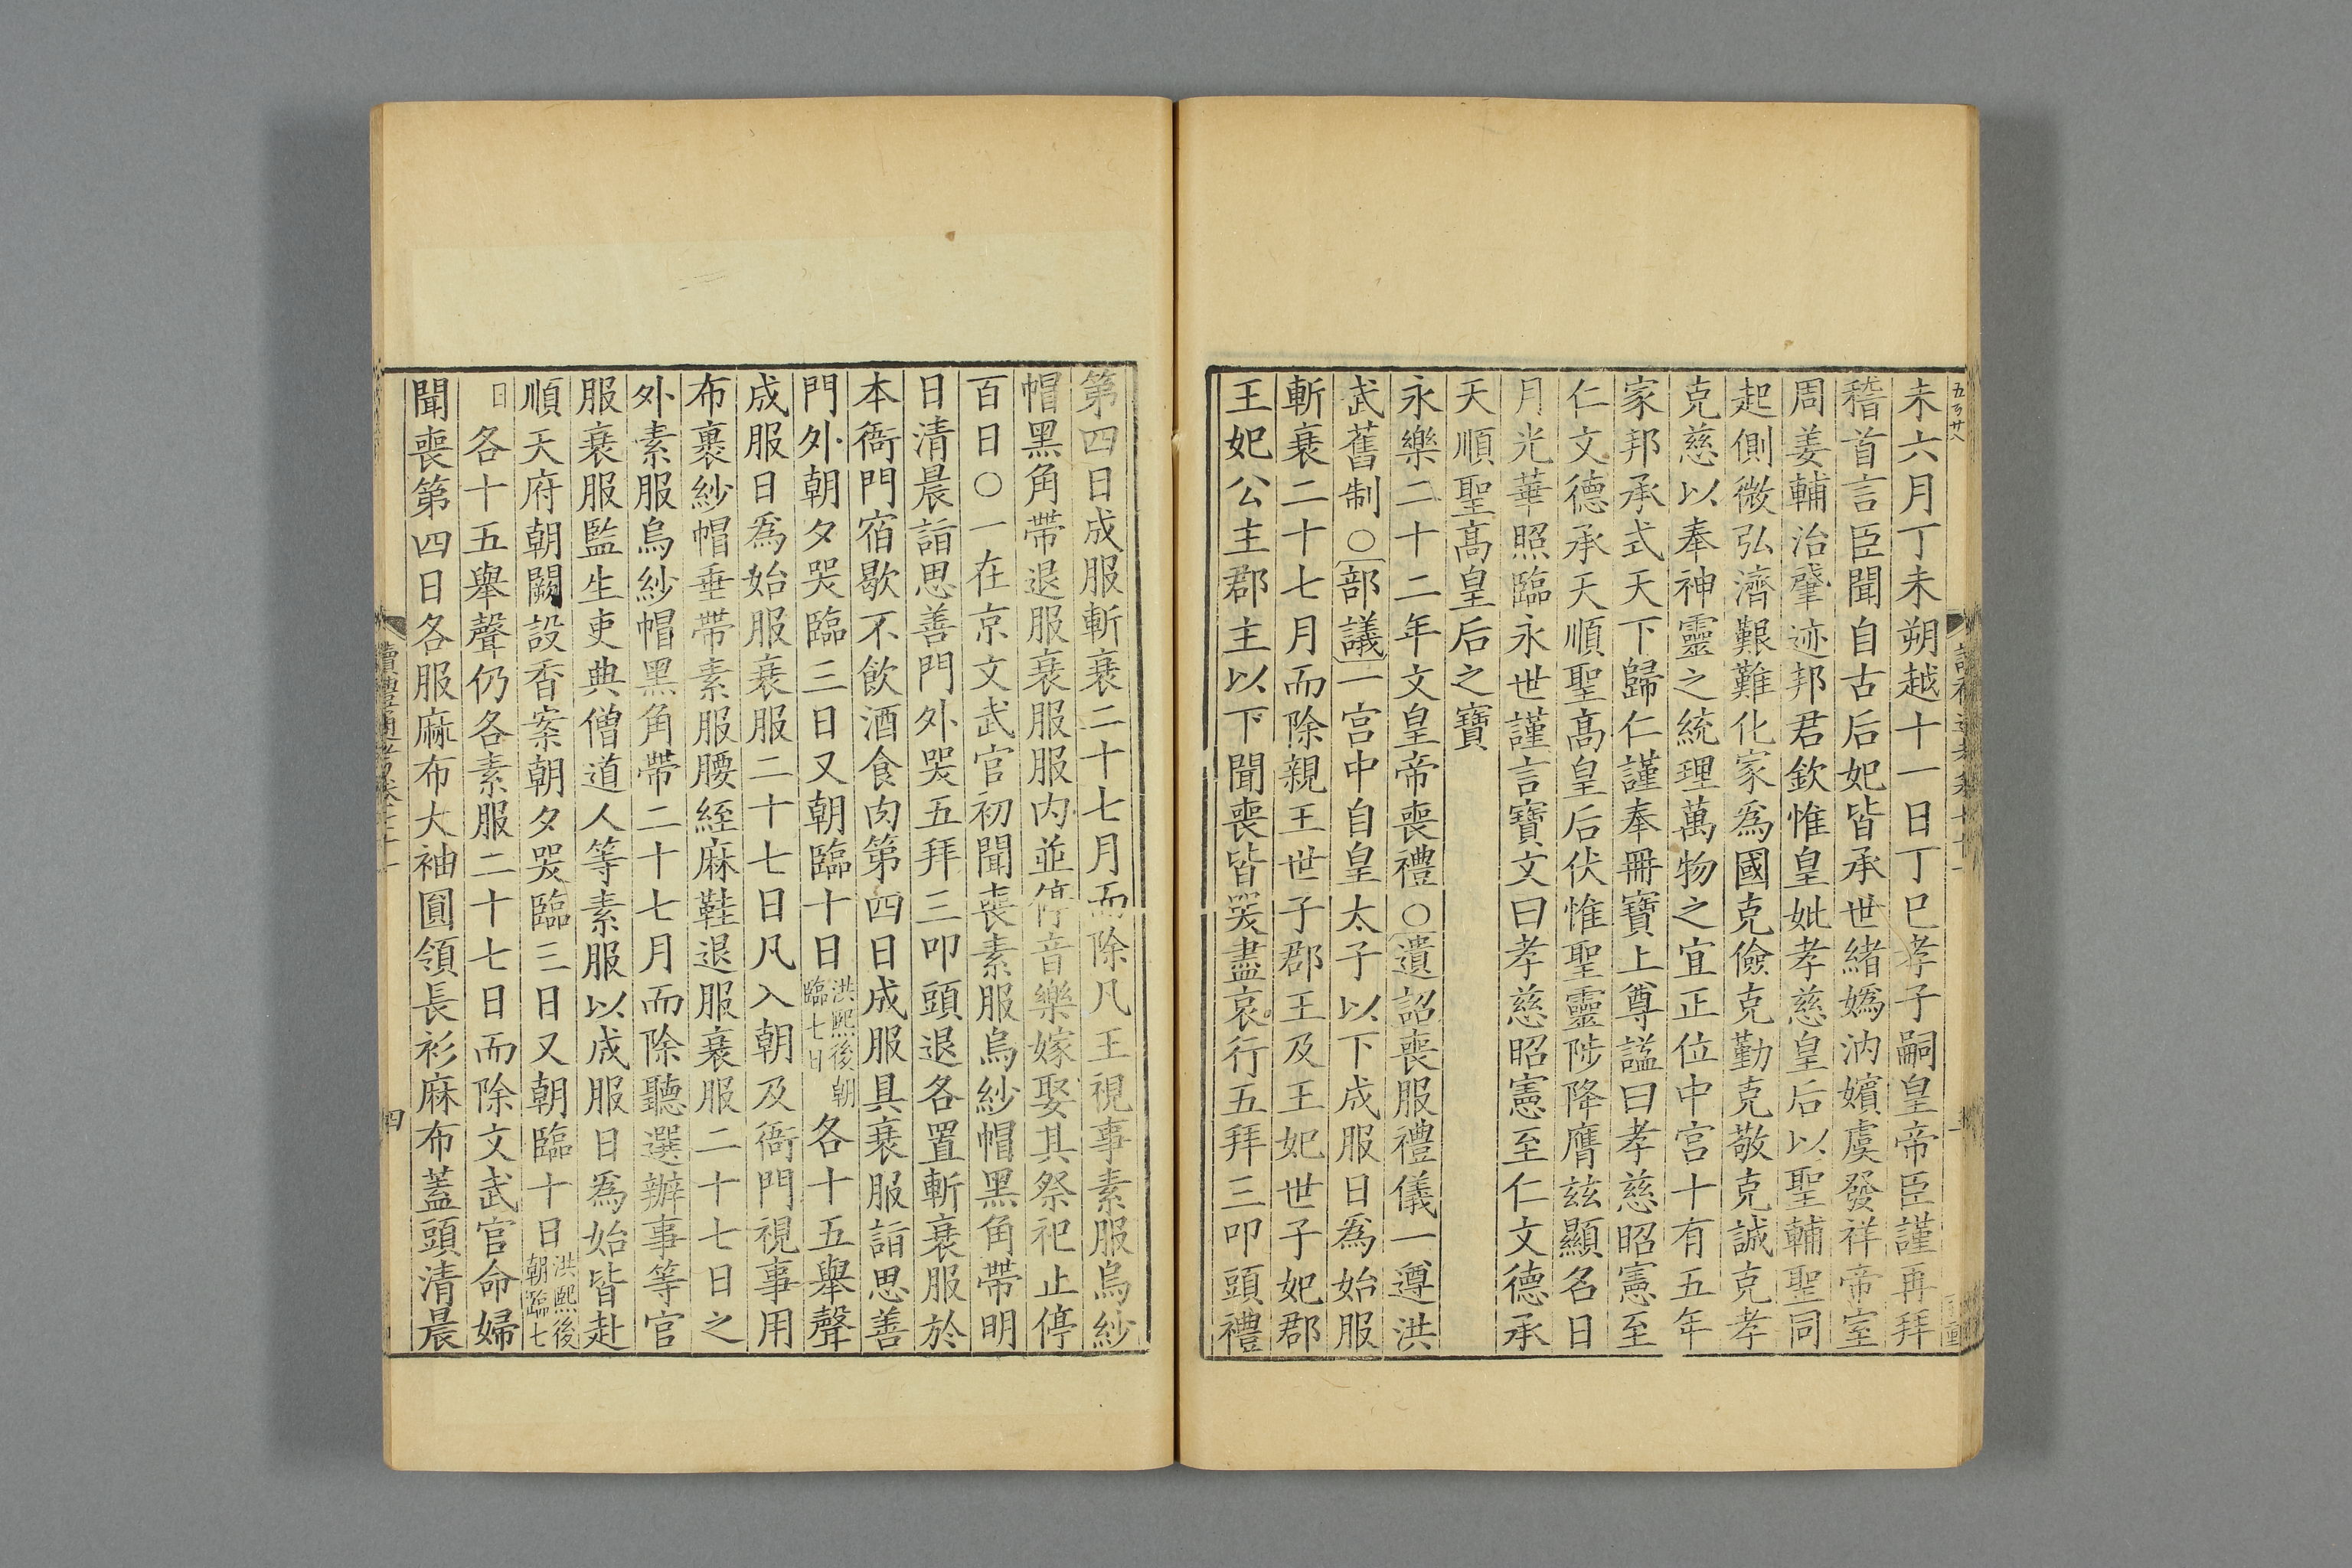 未六月丁未朔越十一日丁巳孝子嗣皇帝臣謹再拜
稽首言臣聞自古后妃皆承世緒嬀汭嬪虞發祥帝室
周姜輔治肇迹邦君欽惟皇妣孝慈皇后以聖輔聖同
起側微弘濟艱難化家爲國克儉克勤克敬克誠克孝
克慈以奉神靈之統理萬物之宜正位中宮十有五年
家邦承式天下歸仁謹奉冊寶上尊諡曰孝慈昭憲至
仁文德承天順聖高皇后伏惟聖靈陟降膺茲顯名日
月光華照臨永世謹言寶文曰孝慈昭憲至仁文德承
天順聖高皇后之寶
永樂二十二年文皇帝喪禮○遺詔喪服禮儀一遵洪
武舊制○部議一宮中自皇太子以下成服日爲始服
斬衰二十七月而除親王世子郡王及王妃世子妃郡
王妃公主郡主以下聞喪皆哭盡哀行五拜三叩頭禮
第四日成服斬衰二十七月而除凡王視事素服烏紗
帽黑角帶退服衰服服內並停音樂嫁娶其祭祀止停
百日○一在京文武官初聞喪素服烏紗帽黑角帶明
日清晨詣思善門外哭五拜三叩頭退各置斬衰服於
本衙門宿歇不飲酒食肉第四日成服具衰服詣思善
門外朝夕哭臨三日又朝臨十日洪熙後朝臨七日各十五舉聲
成服日爲始服衰服二十七日凡入朝及衙門視事用
布裹紗帽垂帶素服腰絰麻鞋退服衰服二十七日之
外素服烏紗帽黑角帶二十七月而除聽選辦事等官
服衰服監生吏典僧道人等素服以成服日爲始皆赴
順天府朝闕設香案朝夕哭臨三日又朝臨十日洪熙後朝臨七
日各十五舉聲仍各素服二十七日而除文武官命婦
聞喪第四日各服麻布大袖圓領長衫麻布蓋頭清晨
讀禮通考卷
四